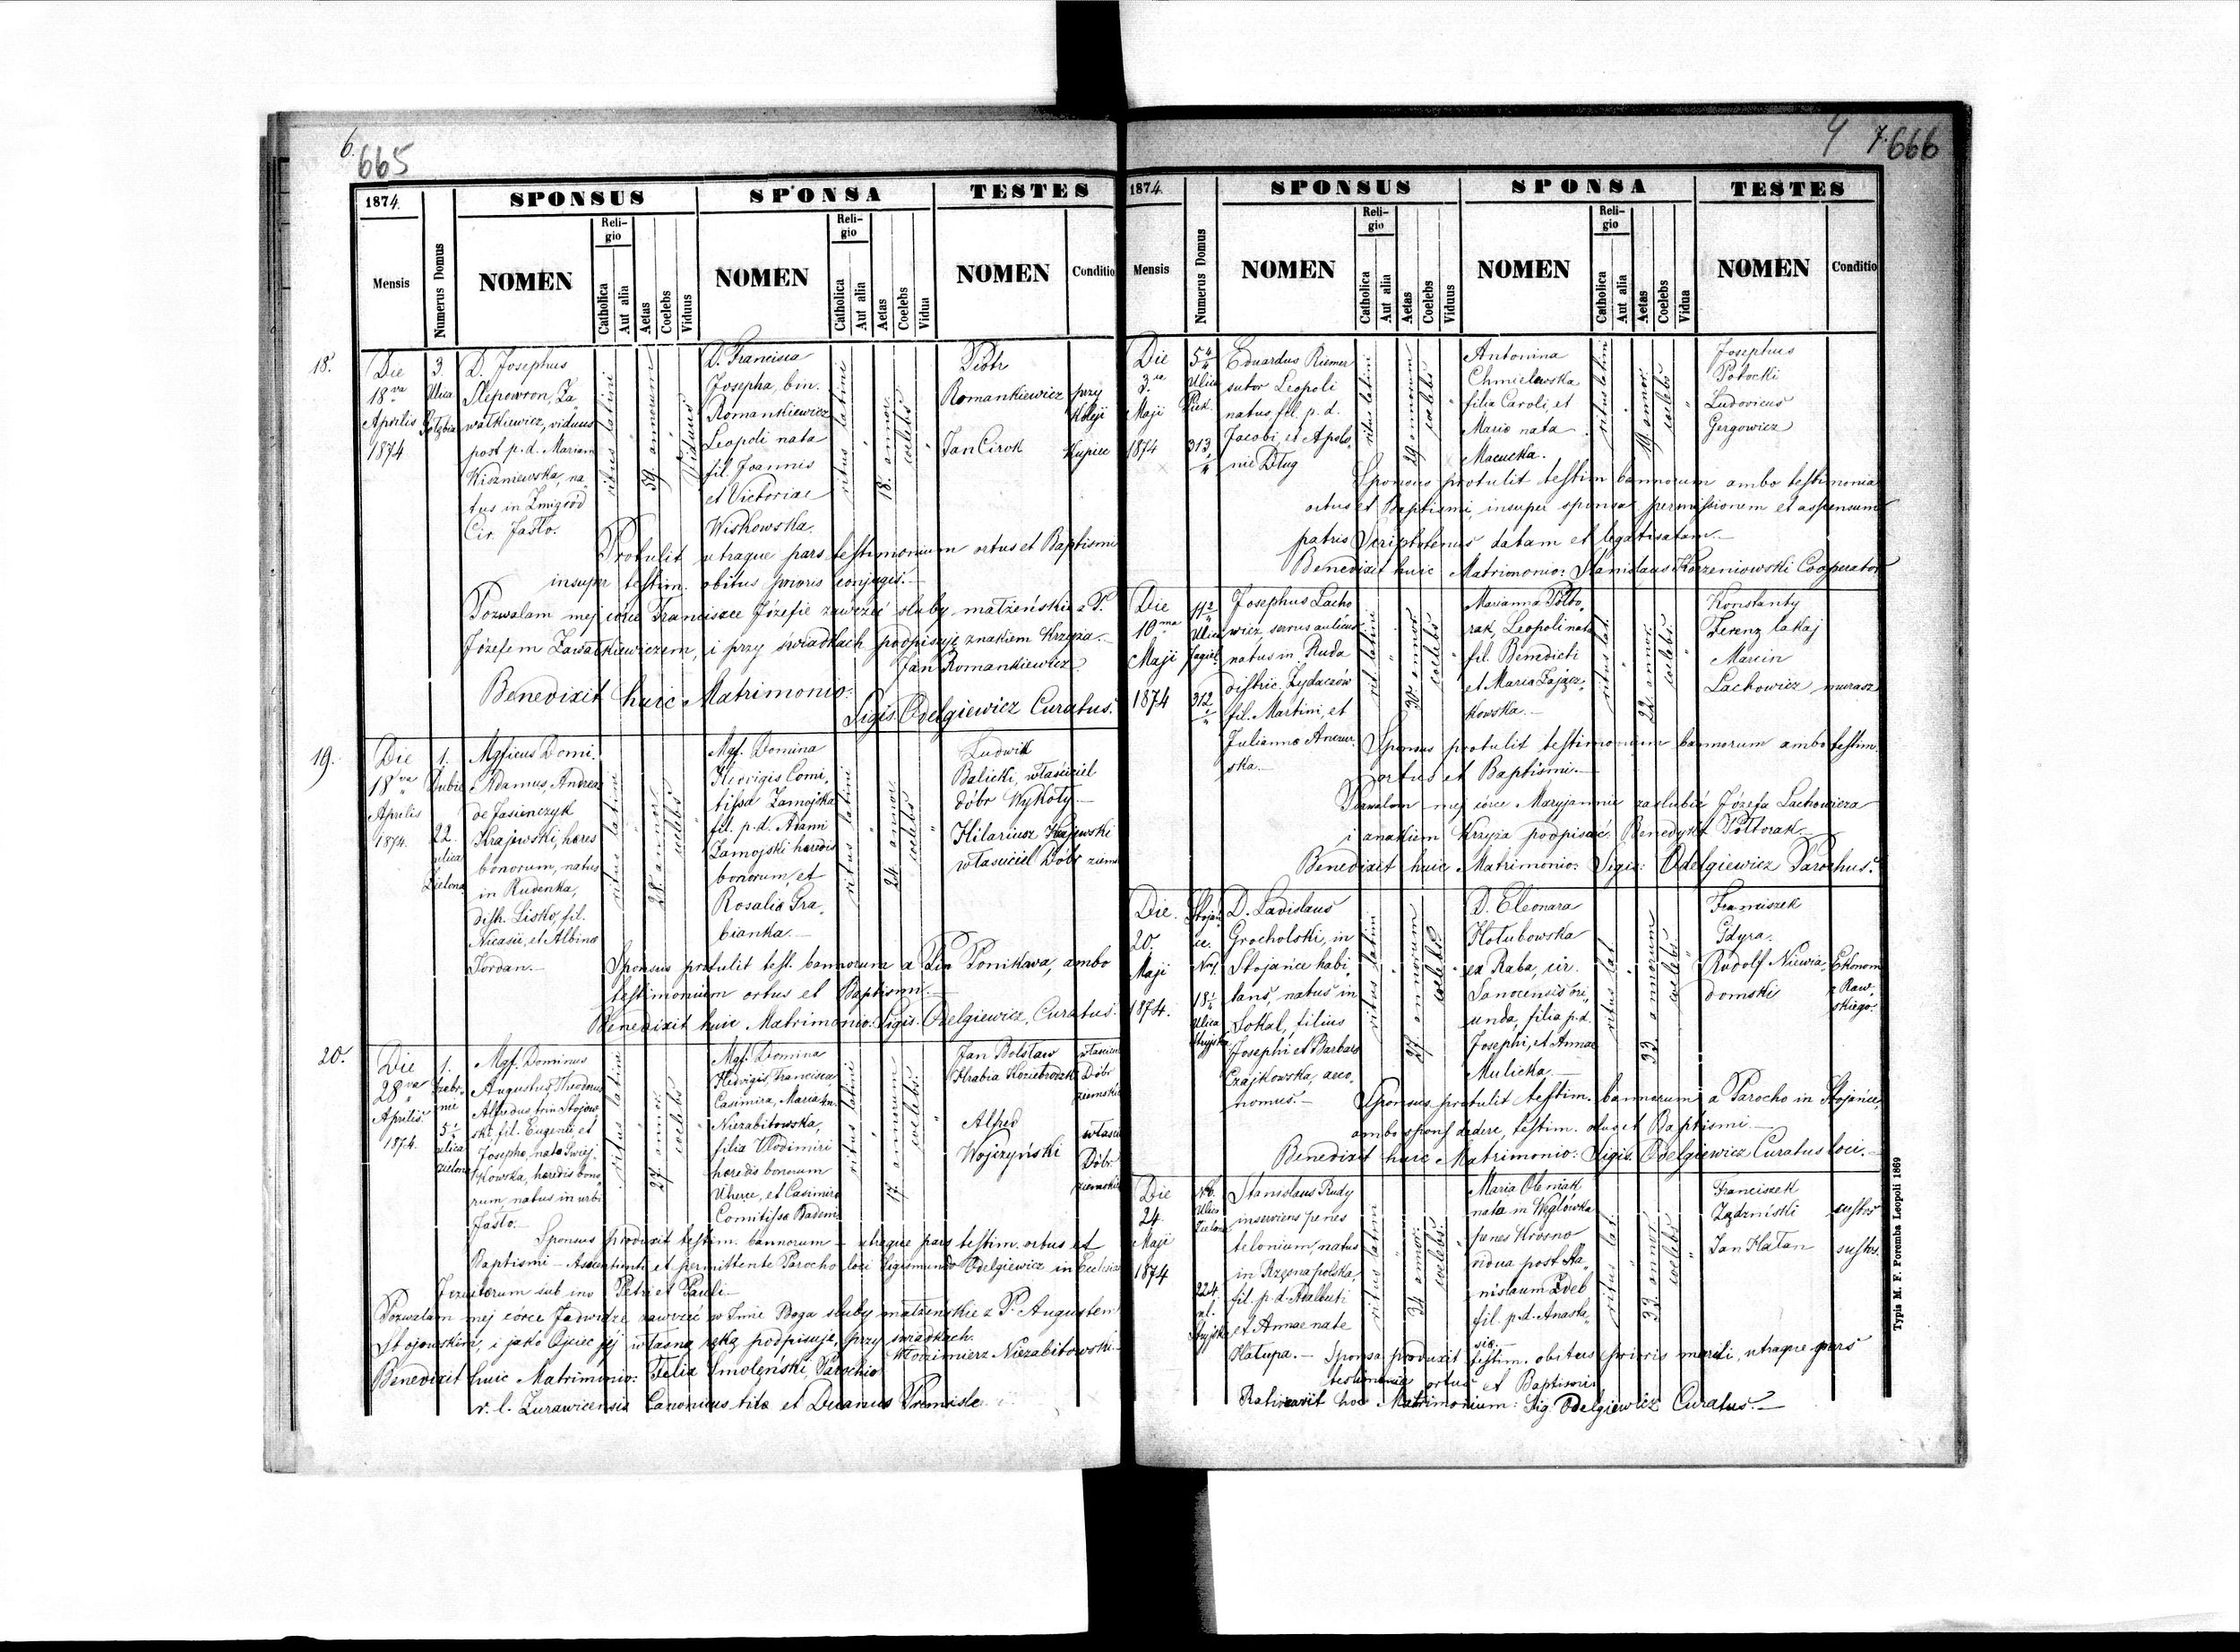 6.
665
1874.
SPONSUS
SPONSA
TESTES
Mensis
Numerus Domus
NOMEN
Religio
Catholica
Aut alia
Aetas
Coelebs
Viduus
NOMEN
Religio
Catholica
Aut alia
Aetas
Coelebs
Vidua
NOMEN
Conditio
18.
Die
18va
Aprilis
1874
3.
Ulica
Gołębia
D. Josephus
Slepowron, Za
wałkiewicz, viduus
post p. d. Mariam
Wiszniewska, na
tus in Zmigród
Cir. Jasło.
ritus latini
59 annorum
Viduus
D. Francisca
Josepha, bin.
Romankiewicz
Leopoli nata
fil. Joannis
et Victoriae
Wiskowska.
ritus latini
18. annor.
coelebs
Piotr
Romankiewicz
przy
Koleji
Jan Cirok
Kupiec
Protulit utraque pars testimonium ortus et Baptismi
insuper testim. obitus prioris conjugis.—
Pozwalam mej córce Francisce Józefie zawrzéć śluby małżeńskie z P.
Józefem Zawałkiewiczem, i przy świadkach podpisuję znakiem Krzyża.—
Jan Romankiewicz
Benedixit huic Matrimonio:
Sigis. Odelgiewicz Curatus.
19.
Die
18va
Aprilis
1874.
1.
22.
ulica
Zielona
Mgficus Domi.
Adamus, Andreas
de Jasienczyk
Krajewski, hæres
bonorum, natus
in Rudenka,
distr. Lisko, fil.
Nicasii, et Albinæ
Jordan.—
ritus latini
28. annor.
coelebs
Mgf. Domina
Hedvigis Comi,
tissa Zamojska
fil. p. d. Adami
Zamojski hæredis
bonorum, et
Rosaliæ Gra,
bianka.—
ritus latini
24 annor.
coelebs
Ludwik
Balicki, właściciel
dóbr Wykoty.—
Hilariusz Krajewski
właściciel Dóbr ziems
Sponsus protulit test. bannorum a Ponikwa, ambo
testimonium ortus et Baptismi.—
Benedixit huic Matrimonio: Sigis. Odelgiewicz, Curatus.
20.
Die
28va
Aprilis.
1874.
1.
5 1/4
ulica
Zielona
Mgf. Dominus
Augustus, Theodorus
Alfredus, trin. Stojow
ski, fil. Eugenii et
Josephæ, nata Swiej,
kowska, hæredis bono
rum, natus in urbi
Jasło.—
ritus latini
27 annor.
coelebs
Mgf. Domina
Hedvigis, Francisca,
Casimira, Maria
Niezabitowska,
filia Vlodimiri
hæredis bonorum
Uherce, et Casimiræ
Comitissæ Badeni
ritus latini
17 annorum
coelebs.
Jan Bolsław
Hrabia Koziebrodzki
właściciel
Dóbr
ziemskich
Alfred
Wojczyński
właści
Dóbr
ziemskich
Sponsus produxit testim. bannorum — utraque pars testim. ortus et
Baptismi — Assentiente et permittente Parocho loci Sigismundo Odelgiewicz in Ecclesia
Jezuitorum sub inv Petri et Pauli—
Pozwalam mej córce Jadwidze zawrzéć w Imie Boga śluby małżeńskie z P. Augustem
Stojowskim, i jako Ojciec jéj własną ręką podpisuję, przy świadkach.
Włodzimierz Niezabitowski.—
Benedixit huic Matrimonio: Felix Smoleński, Parochus
r. l. Zurawicensis Canonicus tit. et Decanus Premisl.
4
7.
666
1874.
SPONSUS
SPONSA
TESTES
Mensis
Numerus Domus
NOMEN
Religio
Catholica
Aut alia
Aetas
Coelebs
Viduus
NOMEN
Religio
Catholica
Aut alia
Aetas
Coelebs
Vidua
NOMEN
Conditio
Die
3.ia
Maji
1874
5 4/4
Ulica
Piek.
313/4
Eduardus Riemer
sutor Leopoli
natus fil. p. d.
Jacobi, et Apolo,
niæ Dług
ritus latini
29 annorum
coelebs
Antonina
Chmielewska
filia Caroli, et
Mariæ nata
Macucka.
ritus latini
19 annor.
coelebs
Josephus
Potocki
Ludovicus
Gergowicz
Sponsus protulit testim bannorum ambo testimonia
ortus et Baptismi, insuper sponsa permissionem et assensum
patris Scriptotenus datam et legalisatam.—
Benedixit huic Matrimonio: Stanislaus Korzeniowski Cooperator
Die
10ma
Maji
1874
112/4
Ulica
Jagiel.
312
Josephus Lacho
wicz, servus aulicus
natus in Ruda
distric. Zydaczów
fil. Martini, et
Juliannæ
ska.—
rit latini
30. annor.
coelebs
Marianna Półto,
rak, Leopoli nata
fil. Benedicti
et Maria Zając,
kowska.—
ritus lat.
22 annor.
coelebs.
Konstanty
Ferenz lakaj
Marcin
Lachowicz
murarz
Sponsus protulit testimonium bannorum ambo testim.
ortus et Baptismi.—
Pozwalam mej córce Maryjannie zaślubić Józefa Lachowicza
i znakiem Krzyża podpisać Benedykt Półtorak—
Benedixit huic Matrimonio: Sigis: Odelgiewicz Parochus.
Die.
20.
Maji
1874.
Stojań
ce.
Nr 1.
18 1/4
Ulica
Stryjska
D. Ladislaus
Grocholski, in
Stojańce habi,
tans, natus in
Sokal, filius
Josephi et Barbaræ
Czajkowska, œco,
nomus.—
ritus latini
37 annorum
coelebs
D. Eleonara
Hołubowska
ex Raba, cir.
Sanocensis ori,
unda, filia p. d.
Josephi, et Annae
Mulicka.—
ritus lat.
33 annorum
coelebs
Franciszek
Gdyra.
Rudolf Niewia,
domski
Ekonom
z Raw,
skiego.
Sponsus protulit testim. bannorum a Parocho in Stojańce,
ambo spons dedere, testim. ortus et Baptismi.—
Benedixit huic Matrimonio: Sigis. Odelgiewicz Curatus loci.—
Die
24.
Maji
1874
N 6.
Ulica
Zielona
224.
ul.
Stryjska
Stanislaus Rudy
inserviens penes
telonium, natus
in Rzęsna polska,
fil. p. d. Adalberti
et Annae natæ
Hałupa.—
ritus latini
34 annor.
coelebs.
Maria Oleniak
nata in Węglówka
penes Krosno
vidua post Sta,
nislaum Dzeb
fil. p. d. Anasta,
siæ—
ritus lat.
33. annor.
coelebs
Franciszek
Ządziński
custos
Jan Hałan
custos.
Sponsa produxit testim. obitus prioris mariti, utraque pars
testimonia ortus et Baptismi
Rativeavit hoc Matrimonium: Sig. Odelgiewicz Curatus.—
Typis M. F. Poremba Leopoli 1869